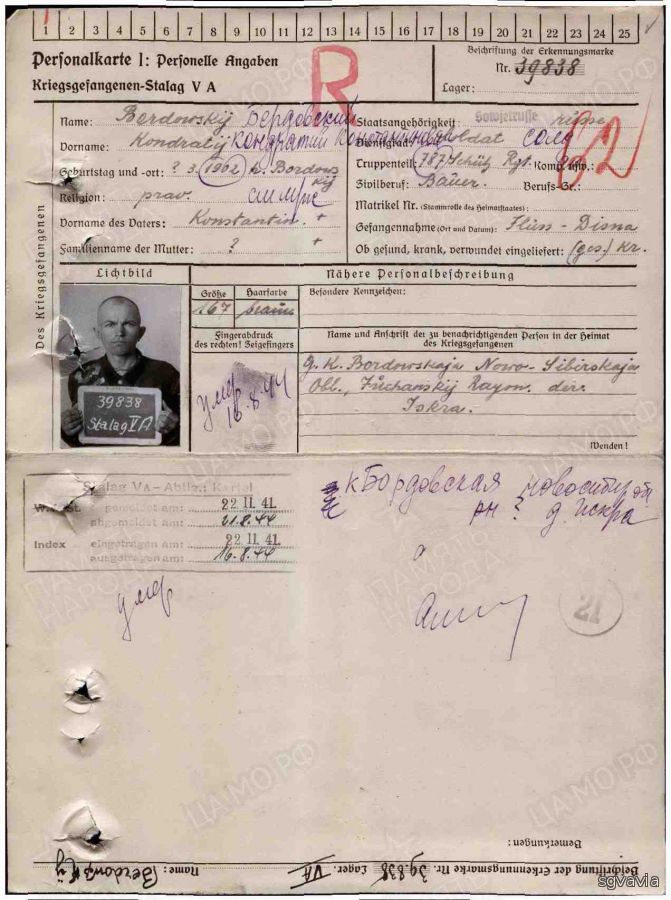 1 2 3 4 5 6 7 8 9 10 11 12 13 14 15 16 17 18 19 20 21 22 23 24 25
Personalkarte I: Personelle Angaben
Kriegsgefangenen-Stalag V A
R
Beschriftung der Erkennungsmarke
Nr. 39838
Lager:
Des Kriegsgefangenen
Name: Bordowskij Бердовский
Vorname: Kondratij Кондратий Константинов
Geburtstag und -ort: ? 3. 1902 N. Bordowskij
Religion: prav.
Vorname des Vaters: Konstantin +
Familienname der Mutter: ? +
Staatsangehörigkeit: Sowjetrusse russe
Dienstgrad: Soldat солд
Truppenteil: 787 Schütz Rgt. Komp. usw.:
Zivilberuf: Bauer. Berufs-Gr.:
Matrikel Nr. (Stammrolle des Heimatstaates):
Gefangennahme (Ort und Datum): Flüss - Disna
Ob gesund, krank, verwundet eingeliefert: (ges.) Kr.
Lichtbild
39838
Stalag VA
Größe Haarfarbe
167 braun
Fingerabdruck
des rechten! Zeigefingers
умер
16.8.44
Nähere Personalbeschreibung
Besondere Kennzeichen:
Name und Anschrift der zu benachrichtigenden Person in der Heimat
des Kriegsgefangenen
g. K. Bordowskaja Nowo-Sibirskaja
Obl., Rayon. der.
Iskra.
Wenden!
Stalag VA - Abtlg.: Kartei
angemeldet am: 22.11.41.
abgemeldet am: 21.8.44
Index eingetragen am: 22.11.41.
ausgetragen am: 16.8.44
умер
к Бордовская новосибир об
рн ? д Искра
21
Bemerkungen:
Beschriftung der Erkennungsmarke Nr. 39838 Lager: VA Name: Berdowskij
ЦАМО.РФ
ПАМЯТЬ НАРОДА
sgvavia